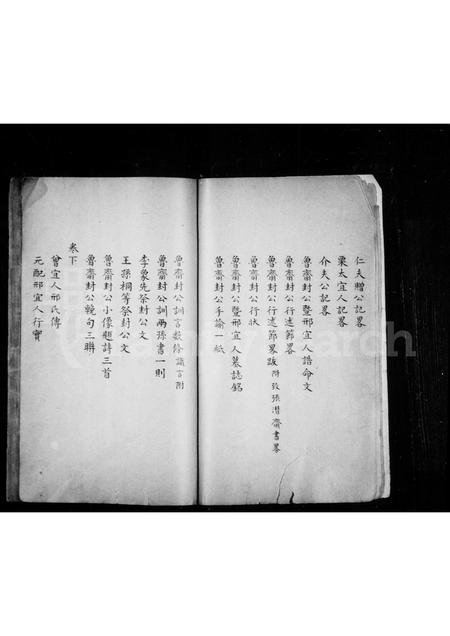 仁夫贈公記畧
栗太宜人記畧
介夫公記畧
魯齋封公暨邢宜人誥命文
魯齋封公行述節畧
魯齋封公行述節畧跋 附攷張潛齋書畧
魯齋封公行狀
魯齋封公暨邢宜人墓誌銘
魯齋封公手諭一紙
魯齋封公訓言數條 識言附
魯齋封公訓兩孫書一則
李象先祭封公文
王孫桐等祭封公文
魯齋封公小像題詩三首
魯齋封公輓句三聯
卷下
曾宜人邢氏傳
元配邢宜人行實